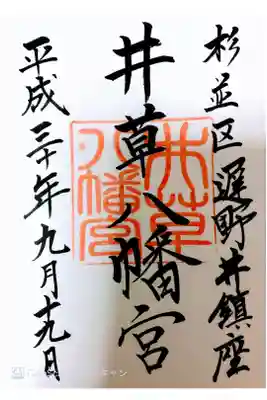 杉並区遲野井鎮座
井草八幡宮
井草
八幡宮
平成三十年九月十九日